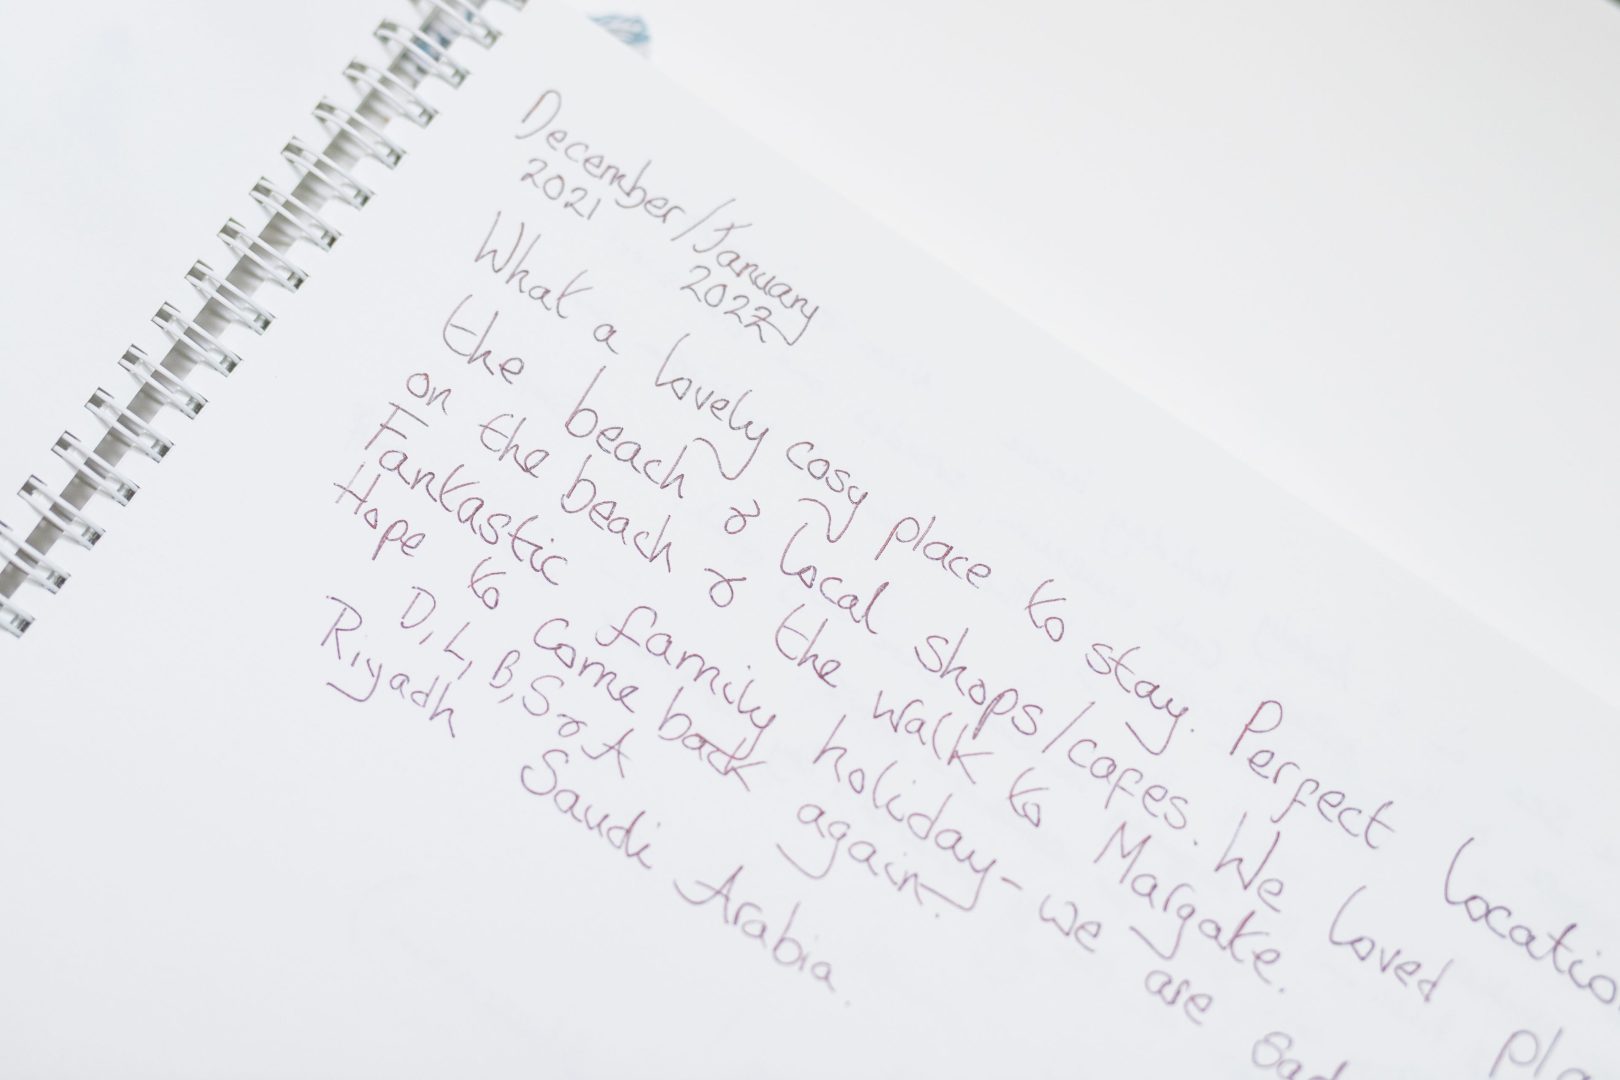 December/January
2021 2022
What a lovely cosy place to stay. Perfect
the beach & local shops/cafes. We loved
on the beach & the walk to Margate.
Fantastic family holiday - we are
Hope to come back again.
D, L, B, S & A
Riyadh Saudi Arabia.